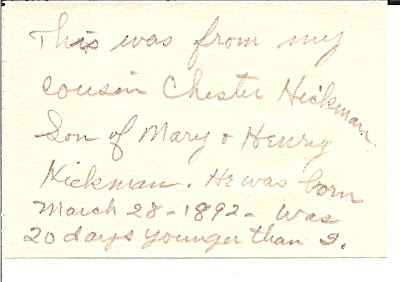 This was from my
cousin Chester Hickman
Son of Mary & Henry
Hickman. He was born
March 28-1892- Was
20 days younger than I.